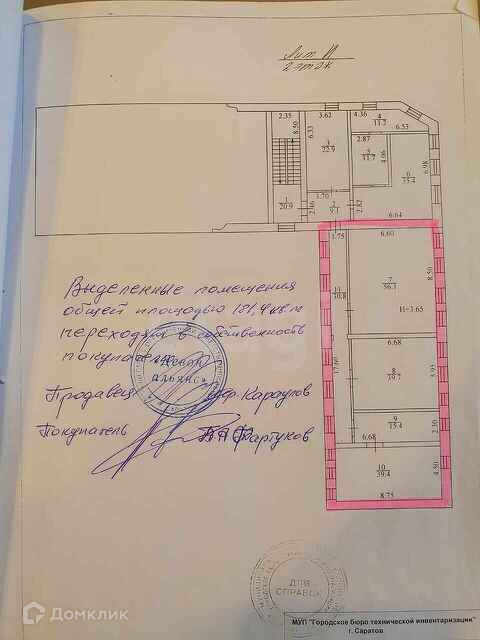 Лит И
2 этаж
2.35
8.50
3.62
6.33
4.36
4
11.2
6.53
3
22.9
2.87
5
11.7
4.06
6
35.4
6.98
1
20.9
3.70
2.46
2
9.1
2.82
6.64
1.75
6.60
7
56.1
8.50
Н=3.65
11
30.8
17.60
6.68
8
39.7
5.95
9
15.4
2.30
6.68
10
39.4
4.50
8.75
Выделенные помещения
общей площадью 181,4 кв м
переходят в собственность
покупателя
Продавец Караулов
Покупатель Фартуков
АЛЬЯНС
ДЛЯ
СПРАВОК
МУП "Городское бюро технической инвентаризации"
г. Саратов
Домклик